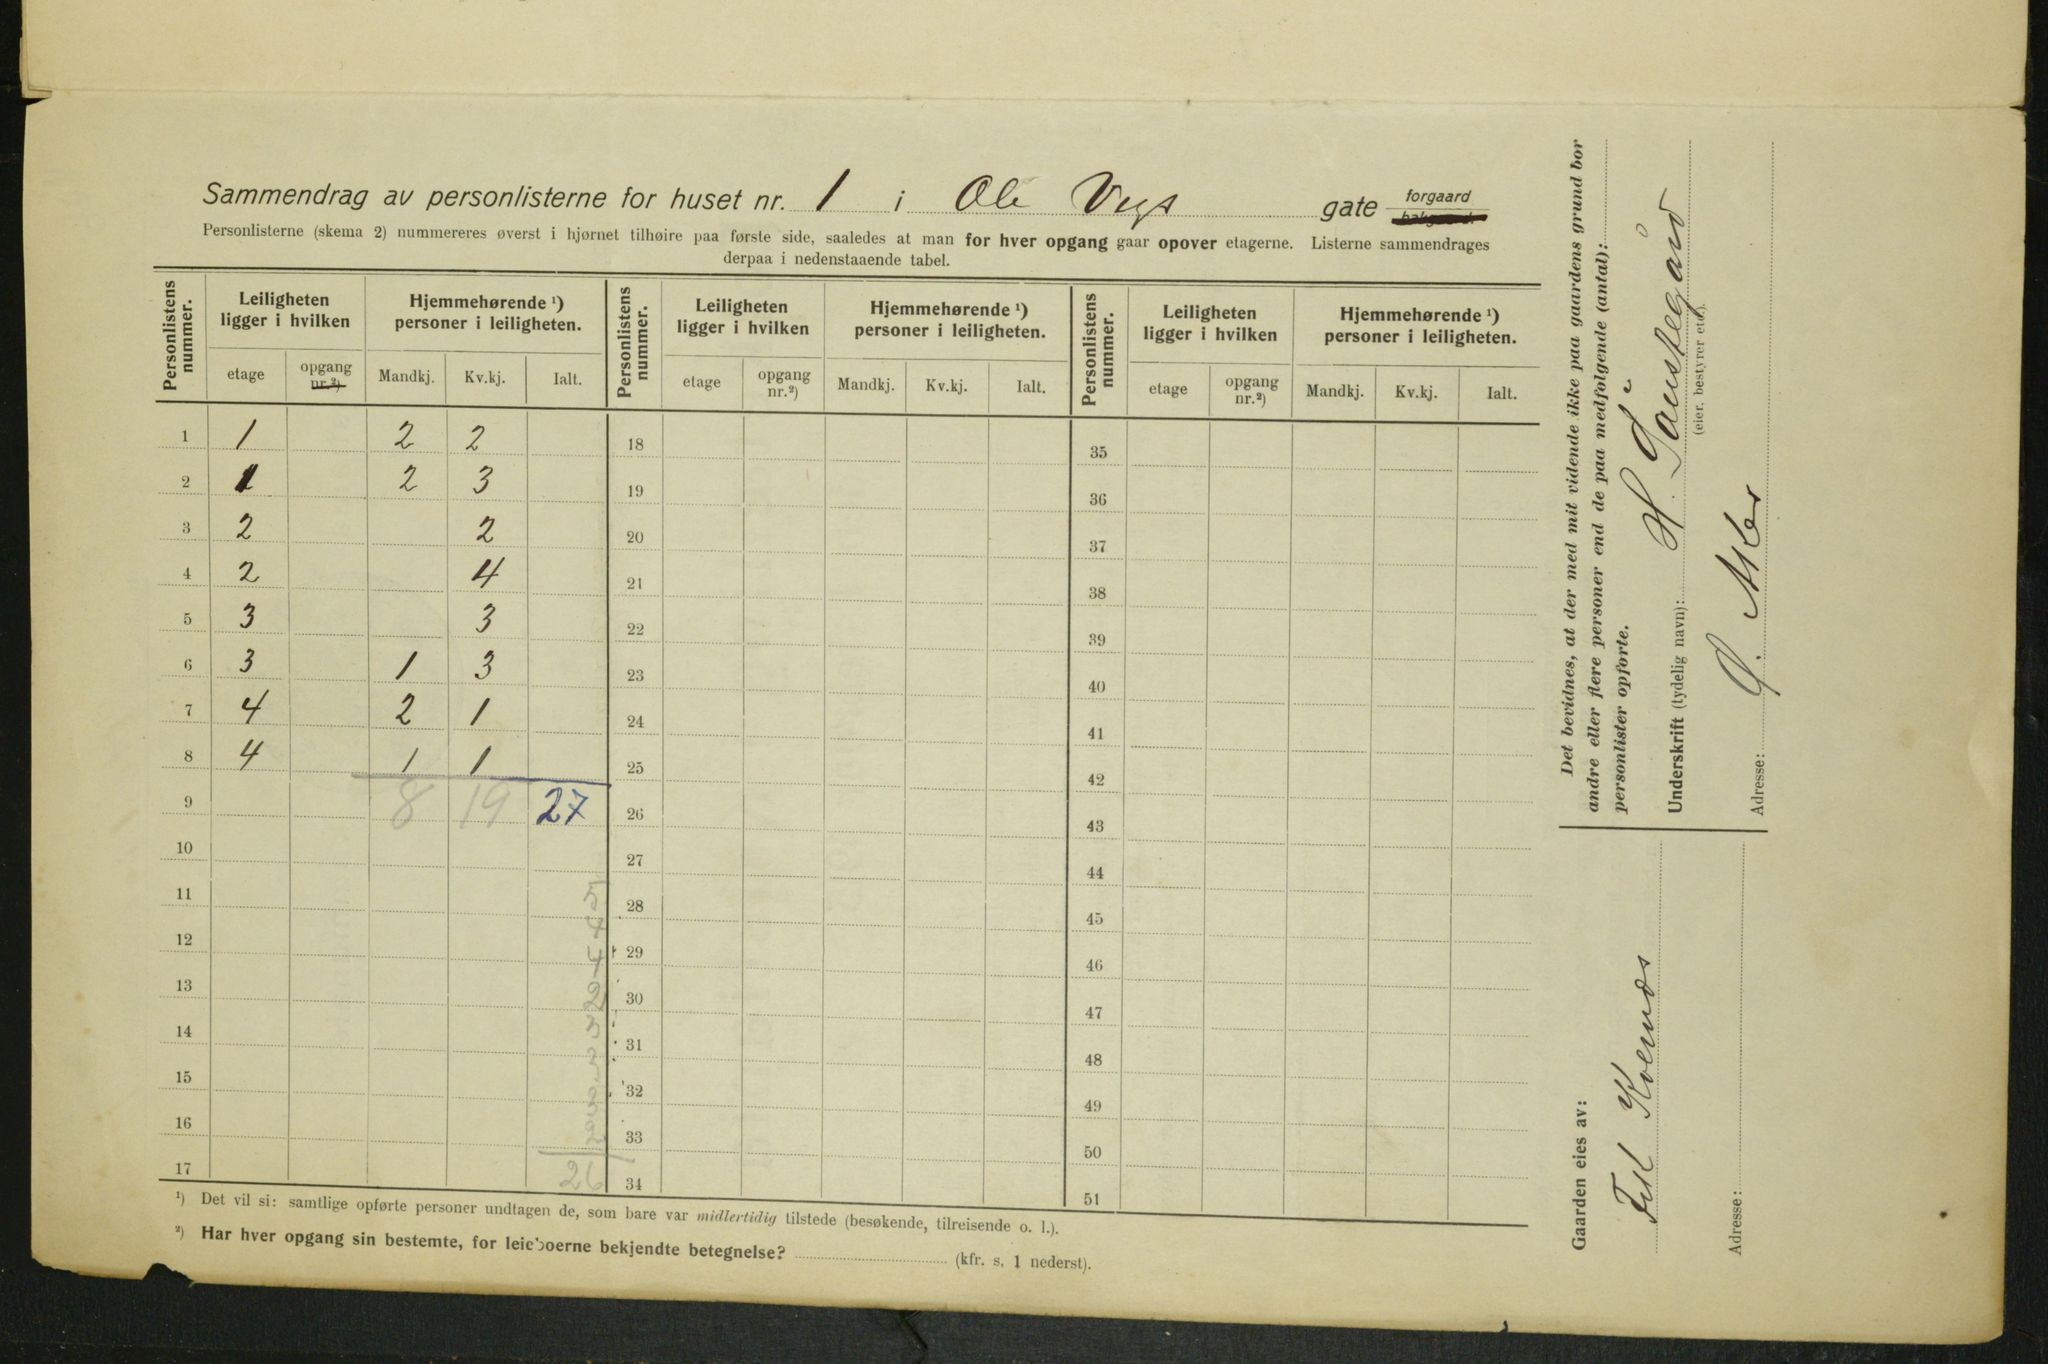 Sammendrag av personlisterne for huset nr. 1 i Ole Vigs gate forgaard bakgaard.
Personlisterne (skema 2) nummereres øverst i hjørnet tilhøire paa første side, saaledes at man for hver opgang gaar opover etagerne. Listerne sammendrages
derpaa i nedenstaaende tabel.
Personlistens nummer. Leiligheten ligger i hvilken Hjemmehørende ¹) personer i leiligheten. Personlistens nummer. Leiligheten ligger i hvilken Hjemmehørende ¹) personer i leiligheten. Personlistens nummer. Leiligheten ligger i hvilken Hjemmehørende ¹) personer i leiligheten.
etage opgang nr.²) Mandkj. Kv.kj. Ialt. etage opgang nr.²) Mandkj. Kv.kj. Ialt. etage opgang nr.²) Mandkj. Kv.kj. Ialt.
1 1 2 2 18 35
2 1 2 3 19 36
3 2 2 20 37
4 2 4 21 38
5 3 3 22 39
6 3 1 3 23 40
7 4 2 1 24 41
8 4 1 1 25 42
9 8 19 27 26 43
10 27 44
11 5 28 45
12 4 4 29 46
13 2 30 47
14 3 31 48
15 3 32 49
16 2 33 50
17 26 34 51
¹) Det vil si: samtlige opførte personer undtagen de, som bare var midlertidig tilstede (besøkende, tilreisende o. l.).
²) Har hver opgang sin bestemte, for leieboerne bekjendte betegnelse? (kfr. s. 1 nederst).
Det bevidnes, at der med mit vidende ikke paa gaardens grund bor
andre eller flere personer end de paa medfølgende (antal):
personlister opførte.
Underskrift (tydelig navn): H.
(eier, bestyrer etc.)
Adresse: Ø. Aker
Gaarden eies av:
Adresse: